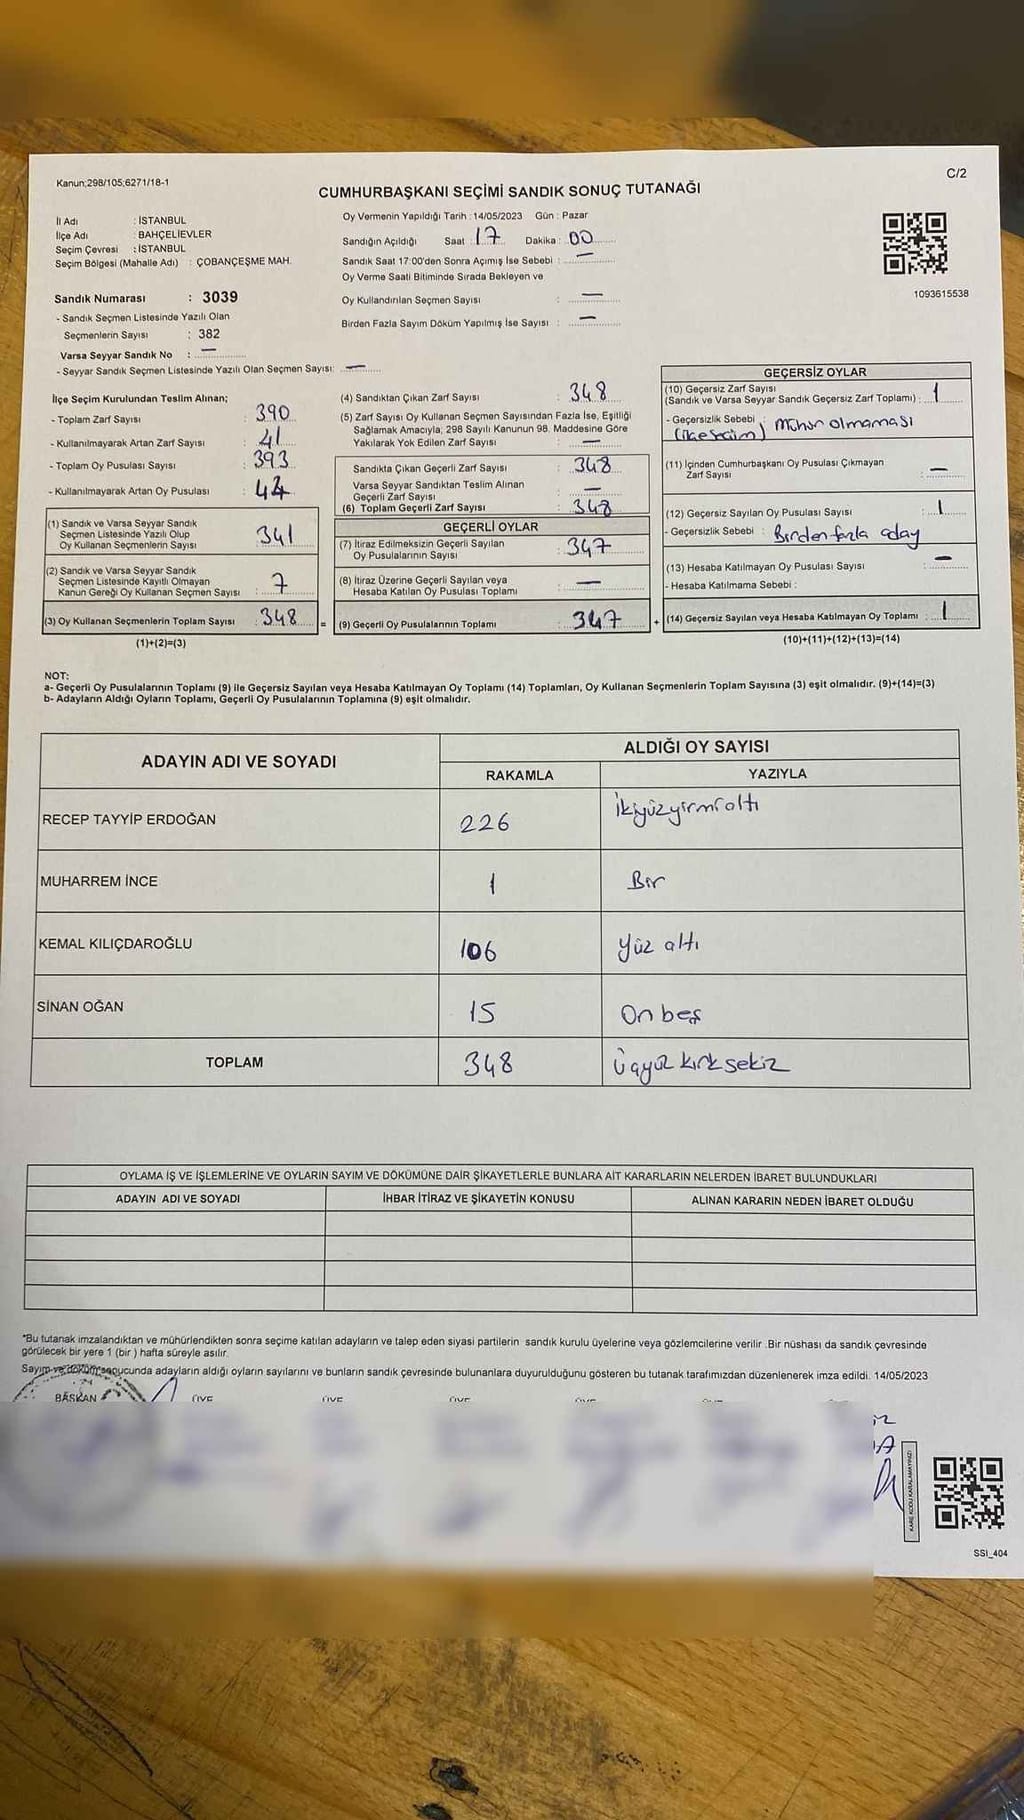 Kanun;298/105;6271/18-1
C/2
CUMHURBAŞKANI SEÇİMİ SANDIK SONUÇ TUTANAĞI
İl Adı : İSTANBUL
İlçe Adı : BAHÇELİEVLER
Seçim Çevresi : İSTANBUL
Seçim Bölgesi (Mahalle Adı) : ÇOBANÇEŞME MAH.
Sandık Numarası : 3039
- Sandık Seçmen Listesinde Yazılı Olan
Seçmenlerin Sayısı : 382
Varsa Seyyar Sandık No : —
- Seyyar Sandık Seçmen Listesinde Yazılı Olan Seçmen Sayısı: —
Oy Vermenin Yapıldığı Tarih : 14/05/2023 Gün : Pazar
Sandığın Açıldığı Saat : 17 Dakika : 00
Sandık Saat 17:00'den Sonra Açımış İse Sebebi : —
Oy Verme Saati Bitiminde Sırada Bekleyen ve
Oy Kullandırılan Seçmen Sayısı : —
Birden Fazla Sayım Döküm Yapılmış İse Sayısı : —
1093615538
İlçe Seçim Kurulundan Teslim Alınan;
- Toplam Zarf Sayısı : 390
- Kullanılmayarak Artan Zarf Sayısı : 41
- Toplam Oy Pusulası Sayısı : 393
- Kullanılmayarak Artan Oy Pusulası : 44
(1) Sandık ve Varsa Seyyar Sandık
Seçmen Listesinde Yazılı Olup
Oy Kullanan Seçmenlerin Sayısı : 341
(2) Sandık ve Varsa Seyyar Sandık
Seçmen Listesinde Kayıtlı Olmayan
Kanun Gereği Oy Kullanan Seçmen Sayısı : 7
(3) Oy Kullanan Seçmenlerin Toplam Sayısı : 348 =
(1)+(2)=(3)
(4) Sandıktan Çıkan Zarf Sayısı : 348
(5) Zarf Sayısı Oy Kullanan Seçmen Sayısından Fazla İse, Eşitliği
Sağlamak Amacıyla; 298 Sayılı Kanunun 98. Maddesine Göre
Yakılarak Yok Edilen Zarf Sayısı : —
Sandıkta Çıkan Geçerli Zarf Sayısı : 348
Varsa Seyyar Sandıktan Teslim Alınan
Geçerli Zarf Sayısı : —
(6) Toplam Geçerli Zarf Sayısı : 348
GEÇERLİ OYLAR
(7) İtiraz Edilmeksizin Geçerli Sayılan
Oy Pusulalarının Sayısı : 347
(8) İtiraz Üzerine Geçerli Sayılan veya
Hesaba Katılan Oy Pusulası Toplamı : —
(9) Geçerli Oy Pusulalarının Toplamı : 347 +
GEÇERSİZ OYLAR
(10) Geçersiz Zarf Sayısı
(Sandık ve Varsa Seyyar Sandık Geçersiz Zarf Toplamı) : 1
- Geçersizlik Sebebi : Mühür olmaması
(ilçe seçim)
(11) İçinden Cumhurbaşkanı Oy Pusulası Çıkmayan
Zarf Sayısı : —
(12) Geçersiz Sayılan Oy Pusulası Sayısı : 1
- Geçersizlik Sebebi : Birden fazla aday
(13) Hesaba Katılmayan Oy Pusulası Sayısı : —
- Hesaba Katılmama Sebebi :
(14) Geçersiz Sayılan veya Hesaba Katılmayan Oy Toplamı : 1
(10)+(11)+(12)+(13)=(14)
NOT:
a- Geçerli Oy Pusulalarının Toplamı (9) ile Geçersiz Sayılan veya Hesaba Katılmayan Oy Toplamı (14) Toplamları, Oy Kullanan Seçmenlerin Toplam Sayısına (3) eşit olmalıdır. (9)+(14)=(3)
b- Adayların Aldığı Oyların Toplamı, Geçerli Oy Pusulalarının Toplamına (9) eşit olmalıdır.
ADAYIN ADI VE SOYADI
ALDIĞI OY SAYISI
RAKAMLA YAZIYLA
RECEP TAYYİP ERDOĞAN 226 İkiyüzyirmialtı
MUHARREM İNCE 1 Bir
KEMAL KILIÇDAROĞLU 106 Yüz altı
SİNAN OĞAN 15 On beş
TOPLAM 348 Üçyüz kırk sekiz
OYLAMA İŞ VE İŞLEMLERİNE VE OYLARIN SAYIM VE DÖKÜMÜNE DAİR ŞİKAYETLERLE BUNLARA AİT KARARLARIN NELERDEN İBARET BULUNDUKLARI
ADAYIN ADI VE SOYADI İHBAR İTİRAZ VE ŞİKAYETİN KONUSU ALINAN KARARIN NEDEN İBARET OLDUĞU
*Bu tutanak imzalandıktan ve mühürlendikten sonra seçime katılan adayların ve talep eden siyasi partilerin sandık kurulu üyelerine veya gözlemcilerine verilir .Bir nüshası da sandık çevresinde
görülecek bir yere 1 (bir ) hafta süreyle asılır.
Sayım ve döküm sonucunda adayların aldığı oyların sayılarını ve bunların sandık çevresinde bulunanlara duyurulduğunu gösteren bu tutanak tarafımızdan düzenlenerek imza edildi. 14/05/2023
BAŞKAN ÜYE ÜYE ÜYE ÜYE ÜYE
KARE KODU KARALAMAYINIZ!
SSI_404